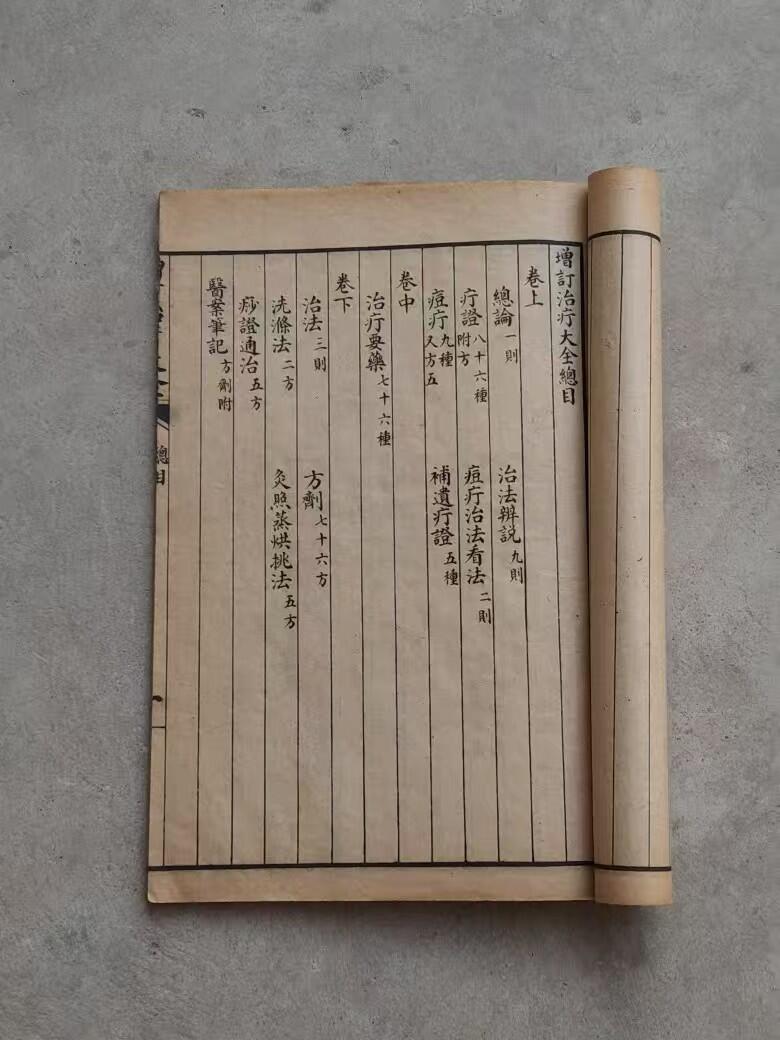 增訂治疔大全總目
卷上
總論一則 治法辨説九則
疔證八十六種附方 痘疔治法看法二則
痘疔九種又方五 補遺疔證五種
卷中
治疔要藥七十六種
卷下
治法三則 方劑七十六方
洗滌法二方 灸照蒸烘挑法五方
痧證通治五方
醫案筆記方劑附
總目
一